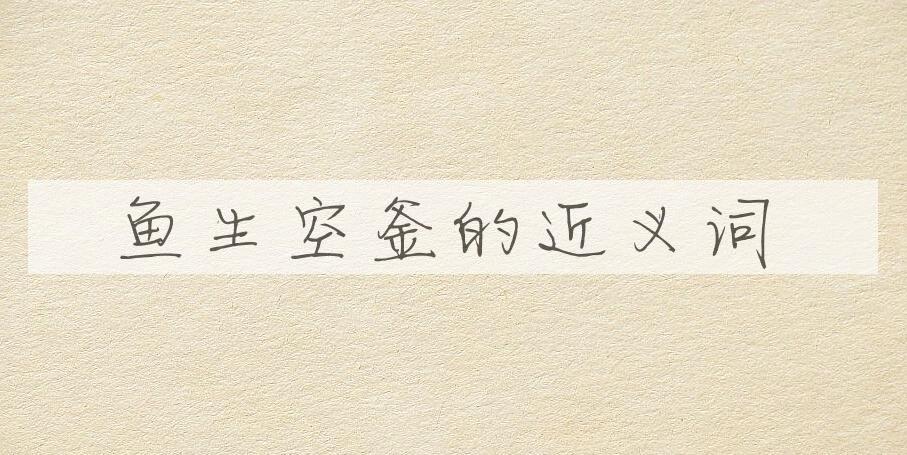 鱼生空釜的近义词